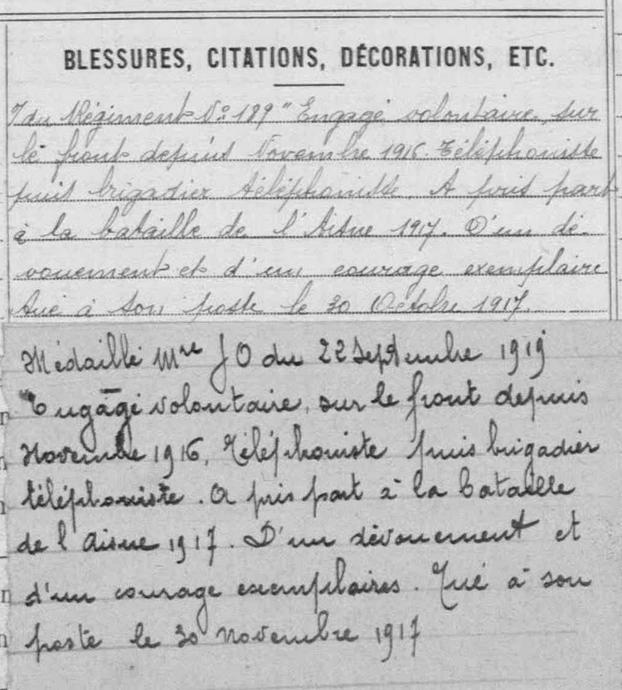 BLESSURES, CITATIONS, DÉCORATIONS, ETC.
du Régiment No 189 "Engagé volontaire, sur
le front depuis Novembre 1916. Téléphoniste
puis brigadier téléphoniste. A pris part
à la bataille de l'Aisne 1917. D'un dé-
vouement et d'un courage exemplaire
tué à son poste le 30 Octobre 1917.
Médaille Mre JO du 22 Septembre 1919
Engagé volontaire, sur le front depuis
Novembre 1916, Téléphoniste puis brigadier
téléphoniste. A pris part à la bataille
de l'Aisne 1917. D'un dévouement et
d'un courage exemplaires. Tué à son
poste le 30 novembre 1917